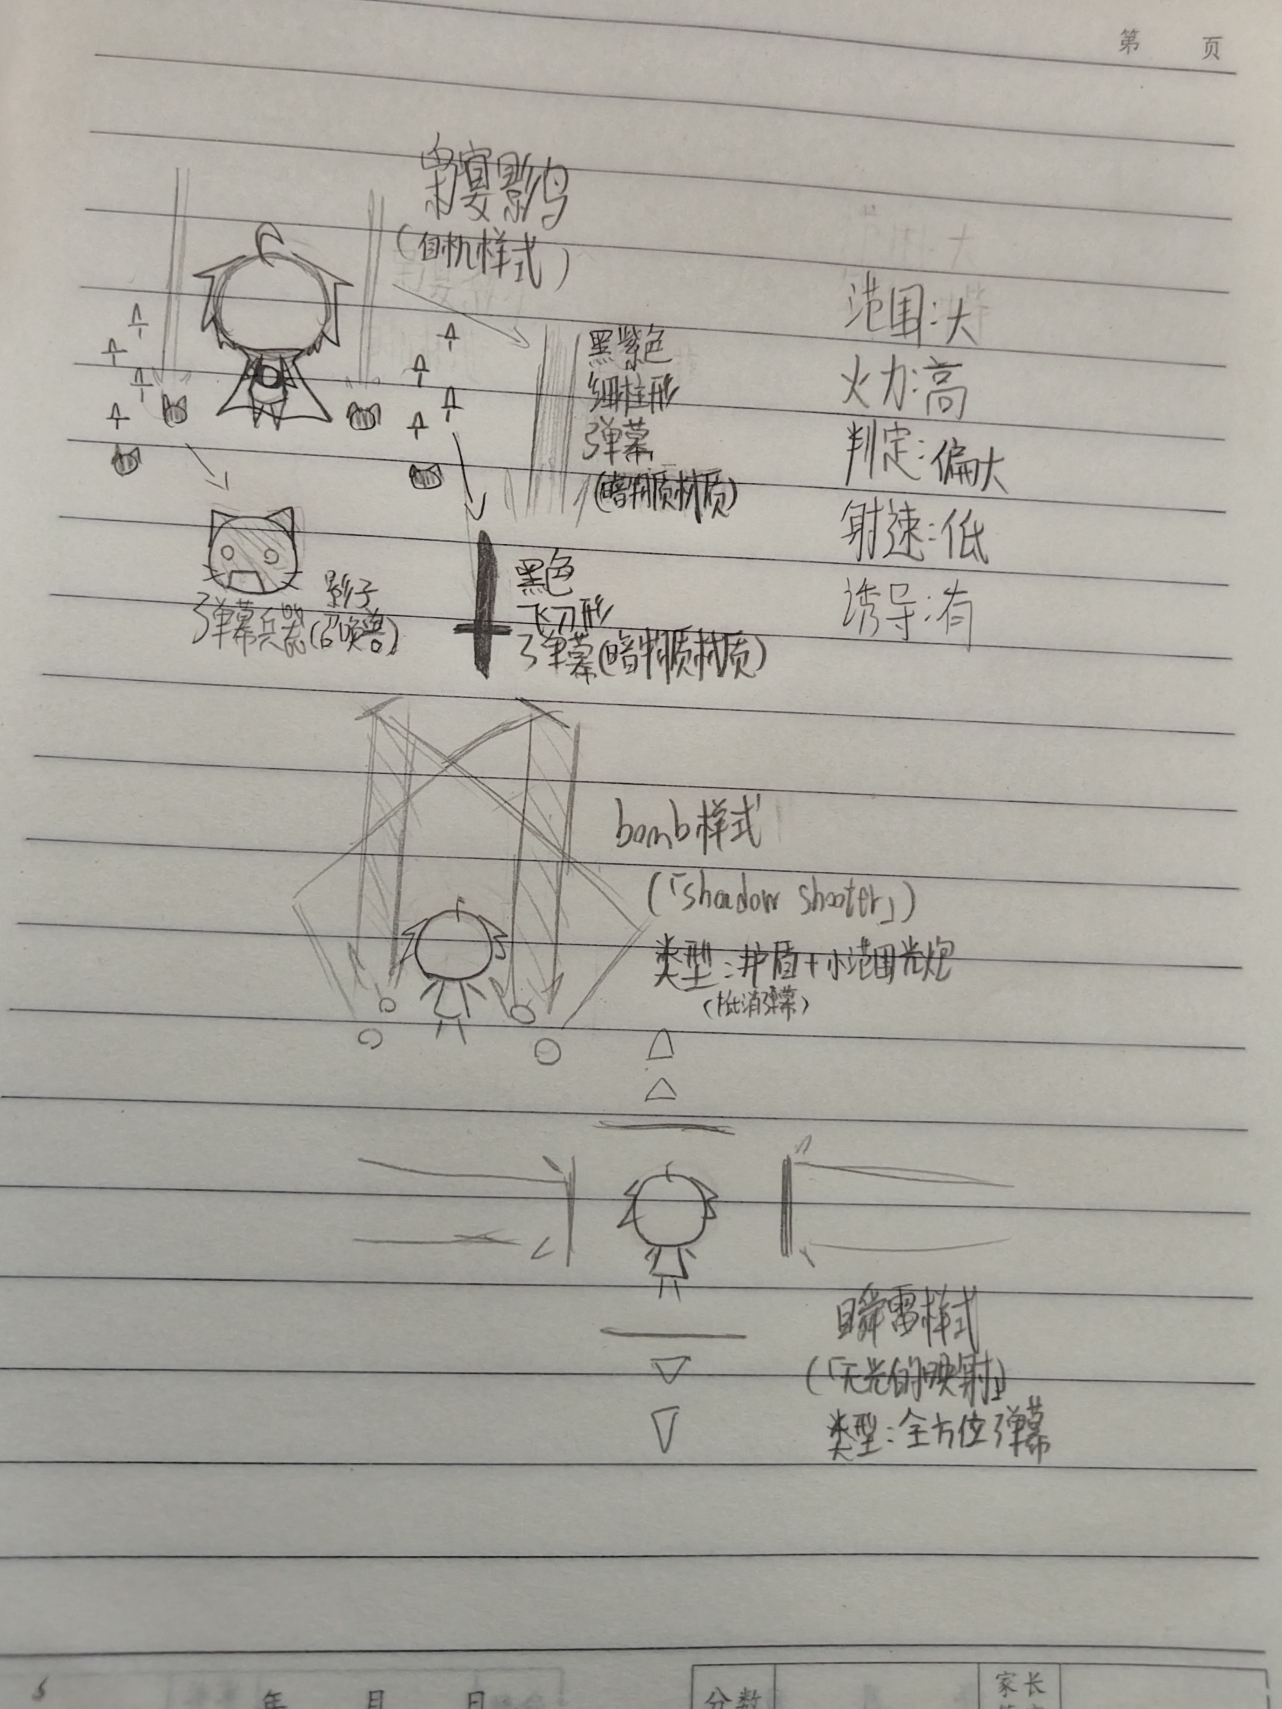 第 页
宴影鸟
(自机样式)
黑紫色
细柱形
弹幕
(暗物质材质)
范围:大
火力:高
判定:偏大
射速:低
诱导:有
影子
弹幕兵器(召唤兽)
黑色
飞刀形
弹幕(暗物质材质)
bomb样式
(「shadow shooter」)
类型:护盾+小范围光炮
(抵消弹幕)
瞬雷样式
(「无光的映射」)
类型:全方位弹幕
年 月 日
分数
家长